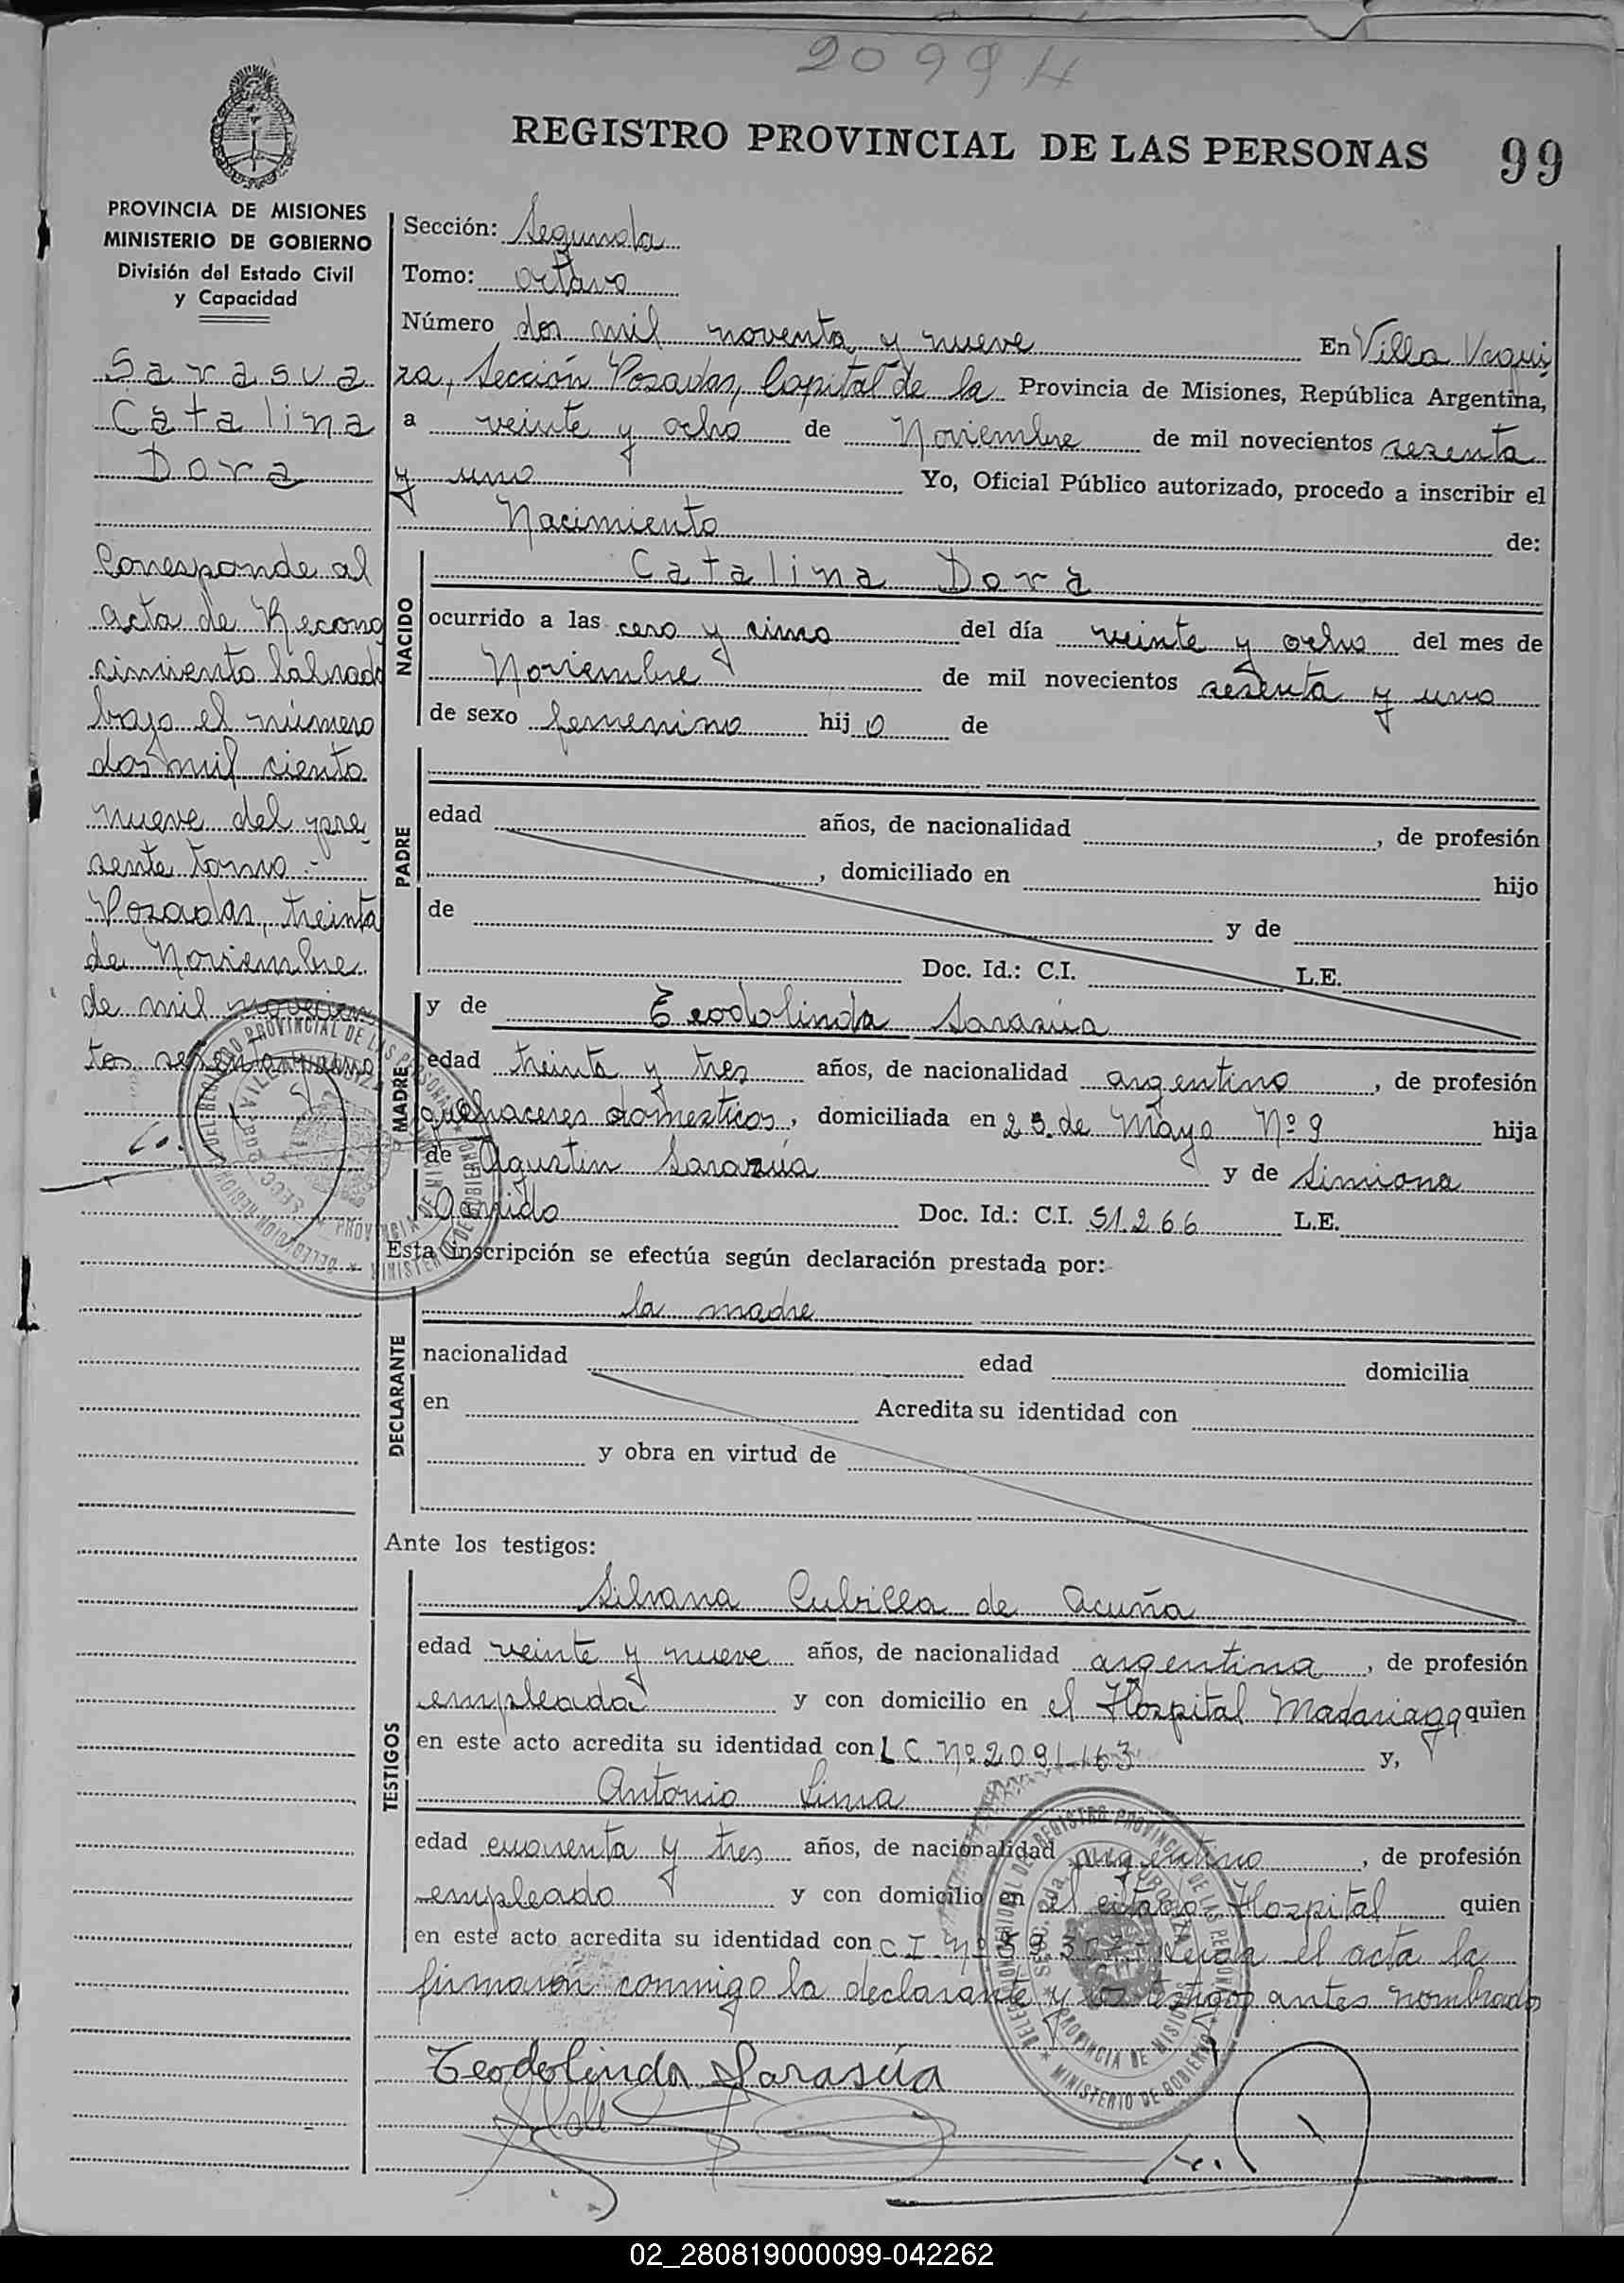 20994
REGISTRO PROVINCIAL DE LAS PERSONAS 99
PROVINCIA DE MISIONES
MINISTERIO DE GOBIERNO
División del Estado Civil
y Capacidad
Sarasua
Catalina
Dora
Corresponde al
acta de Recono
cimiento labrado
bajo el número
dos mil ciento
nueve del pre
sente tomo.-
Posadas, treinta
de Noviembre
de mil novecien
tos sesenta y uno
Sección: Segunda
Tomo: octavo
Número dos mil noventa y nueve En Villa Urqui
za, Sección Posadas, Capital de la Provincia de Misiones, República Argentina,
a veinte y ocho de Noviembre de mil novecientos sesenta
y uno Yo, Oficial Público autorizado, procedo a inscribir el
Nacimiento de:
NACIDO
Catalina Dora
ocurrido a las cero y cinco del día veinte y ocho del mes de
Noviembre de mil novecientos sesenta y uno
de sexo femenino hij o de
PADRE
edad años, de nacionalidad , de profesión
, domiciliado en hijo
de y de
Doc. Id.: C.I. L.E.
MADRE
y de Teodolinda Sarasúa
edad treinta y tres años, de nacionalidad argentino , de profesión
quehaceres domesticos, domiciliada en 25 de Mayo Nº 9 hija
de Agustin Sarasúa y de Simiona
Garrido Doc. Id.: C.I. 51.266 L.E.
Esta inscripción se efectúa según declaración prestada por:
DECLARANTE
la madre
nacionalidad edad domicilia
en Acredita su identidad con
y obra en virtud de
Ante los testigos:
TESTIGOS
Silvana Cubilla de Acuña
edad veinte y nueve años, de nacionalidad argentina , de profesión
empleada y con domicilio en el Hospital Madariaga quien
en este acto acredita su identidad con L C. Nº 2091163 y,
Antonio Lima
edad cuarenta y tres años, de nacionalidad argentino , de profesión
empleado y con domicilio en el citado Hospital quien
en este acto acredita su identidad con C I. Nº Leida el acta la
firmaron conmigo la declarante y los testigos antes nombrados
Teodolinda Sarasúa
02_280819000099-042262